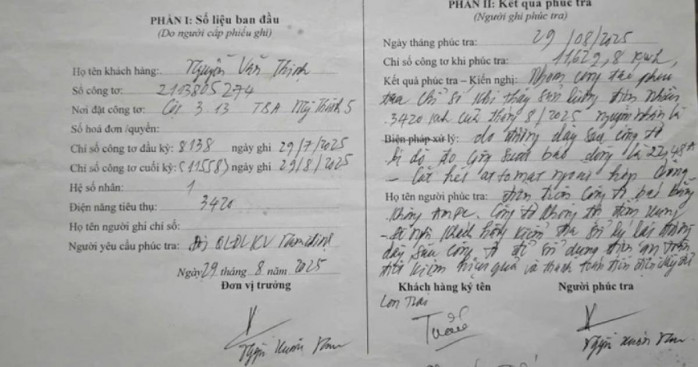 PHẦN I: Số liệu ban đầu
(Do người cấp phiếu ghi)
Họ tên khách hàng: Nguyễn Văn Thịnh
Số công tơ: 2113805274
Nơi đặt công tơ: Cột 3.13 TBA Mỹ Thành 5
Số hoá đơn /quyển:
Chỉ số công tơ đầu kỳ: 8138 ngày ghi 29/7/2025
Chỉ số công tơ cuối kỳ: (11558) ngày ghi 29/8/2025
Hệ số nhân: 1
Điện năng tiêu thụ: 3420
Họ tên người ghi chỉ số:
Người yêu cầu phúc tra: Đội QLĐLKV
Ngày 29 tháng 8 năm 2025
Đơn vị trưởng
PHẦN II: Kết quả phúc tra
(Người ghi phúc tra)
Ngày tháng phúc tra: 29/08/2025
Chỉ số công tơ khi phúc tra: 11.629,8 kWh,
Kết quả phúc tra – Kiến nghị: Nhóm công tác phúc
tra chỉ số khi thấy sản lượng điện nhận
3420 kWh của tháng 8/2025 nguyên nhân là
Biện pháp xử lý: do đường dây sau công tơ
bị dò do công suất báo dòng là 22,48A
- Cắt hết attomat ngoài hộp
Họ tên người phúc tra: điện trên công tơ báo bằng
không Ampe. Công tơ không
- Đề nghị khách hàng kiểm tra xử lý lại đường
dây sau công tơ để sử dụng điện an toàn
tiết kiệm hiệu quả và thanh toán tiền điện
Khách hàng ký tên
Người phúc tra